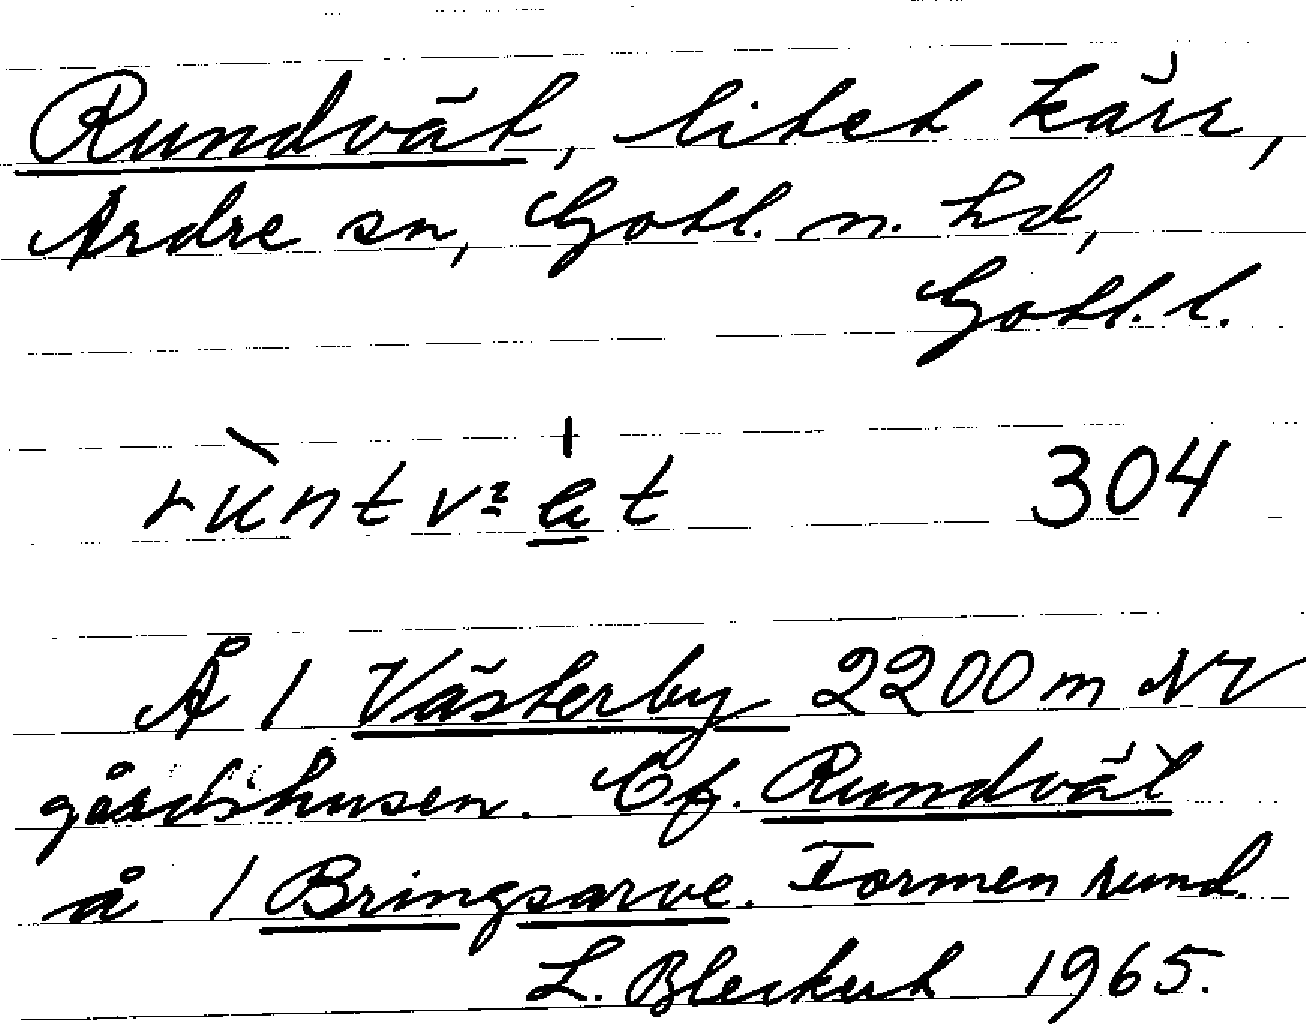 Rundvät, litet kärr,
Ardre sn, Gotl. n. hd,
Gotl. l.
304
Å 1 Västerby 2200 m NV
gårdshusen. Cf. Rundvät
å 1 Bringsarve. Formen rund.
L. Bleckert 1965.